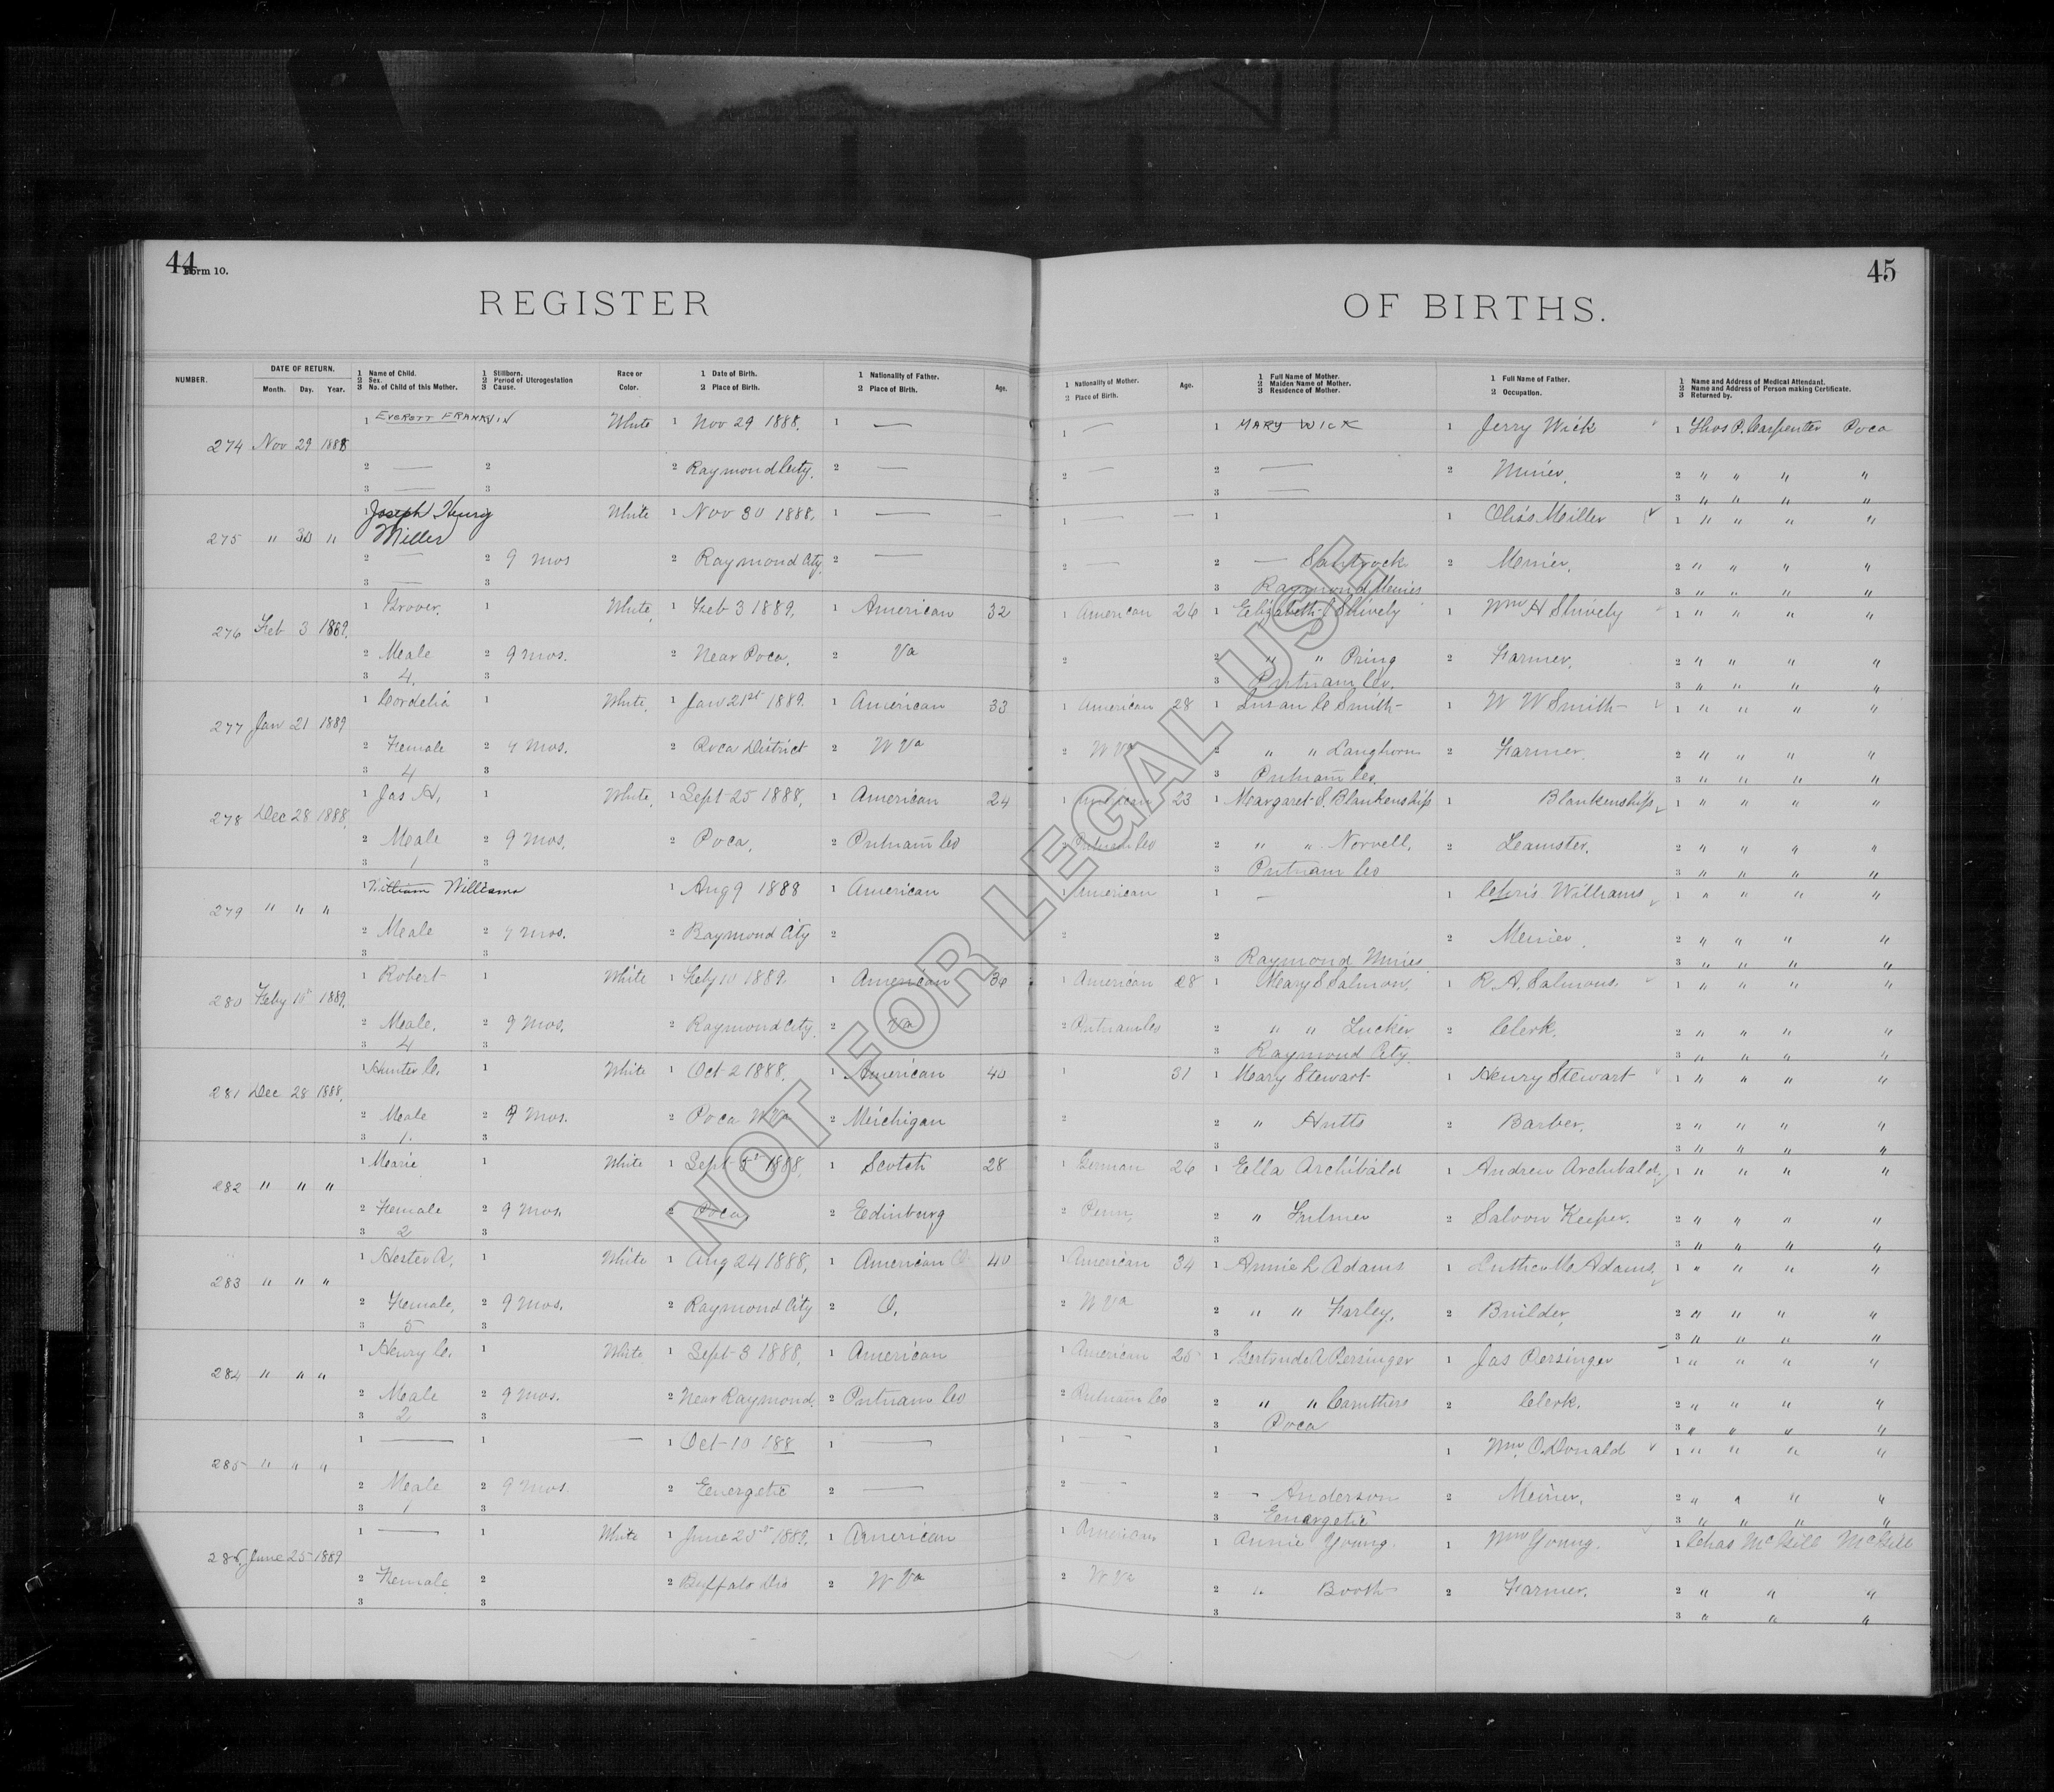 44
Form 10.
45
REGISTER OF BIRTHS.
NUMBER.
DATE OF RETURN.
Month. Day. Year.
1 Name of Child.
2 Sex.
3 No. of Child of this Mother.
1 Stillborn.
2 Period of Uterogestation
3 Cause.
Race or
Color.
1 Date of Birth.
2 Place of Birth.
1 Nationality of Father.
2 Place of Birth.
Age.
1 Nationality of Mother.
2 Place of Birth.
Age.
1 Full Name of Mother.
2 Maiden Name of Mother.
3 Residence of Mother.
1 Full Name of Father.
2 Occupation.
1 Name and Address of Medical Attendant.
2 Name and Address of Person making Certificate.
3 Returned by.
274 Nov 29 1888 1 EVERETT FRANKLIN White 1 Nov 29 1888. 1 — 1 — 1 MARY WICK 1 Jerry Wick 1 Thos P. Carpenter Poca
2 — 2 2 Raymond City. 2 — 2 — 2 — 2 Miner. 2 " " " "
3 — 3 3 — 3 " " " "
275 " 30 " 1 Joseph Henry White 1 Nov 30 1888. 1 — — 1 — — 1 1 Miller 1 " " " "
Miller
2 — 2 9 mos 2 Raymond City. 2 — 2 — 2 — Santrock 2 Miner. 2 " " " "
3 — 3 3 Raymond Mines 3 " " " "
276 Feb 3 1889. 1 Grover. 1 White, 1 Feb 3 1889. 1 American 32 1 American 26 1 Elizabeth Shively 1 Wm H Shively 1 " " " "
2 Male 2 9 mos. 2 Near Poca, 2 Va 2 2 " " Pring 2 Farmer. 2 " " " "
3 4. 3 3 Putnam Co. 3 " " " "
277 Jan 21 1889 1 Cordelia 1 White, 1 Jan 21st 1889. 1 American 33 1 American 28 1 Susan C Smith 1 W W Smith 1 " " " "
2 Female 2 9 mos. 2 Poca District 2 W Va 2 W Va 2 " " Langhorn 2 Farmer. 2 " " " "
3 4 3 3 Putnam Co. 3 " " " "
278 Dec 28 1888. 1 Jas H. 1 White, 1 Sept 25 1888, 1 American 24 1 American 23 1 Margaret S. Blankenship 1 Blankenship 1 " " " "
2 Male 2 9 mos. 2 Poca. 2 Putnam Co 2 Putnam Co 2 " " Norvell. 2 Teamster. 2 " " " "
3 1 3 3 Putnam Co 3 " " " "
279 " " " 1 William Williams 1 Aug 9 1888 1 American 1 American 1 — 1 Chris Williams 1 " " " "
2 Male 2 9 mos. 2 Raymond City 2 2 2 2 Miner. 2 " " " "
3 3 3 Raymond Mines 3 " " " "
280 Feby 10th 1889. 1 Robert 1 White 1 Feby 10 1889. 1 American 36 1 American 28 1 Mary S Salmon. 1 R. A. Salmons. 1 " " " "
2 Male. 2 9 mos. 2 Raymond City 2 Va 2 Putnam Co 2 " " Tucker 2 Clerk. 2 " " " "
3 4 3 3 Raymond City. 3 " " " "
281 Dec 28 1888. 1 Hunter C. 1 White 1 Oct 2 1888. 1 American 40 1 31 1 Mary Stewart 1 Henry Stewart 1 " " " "
2 Male 2 9 mos. 2 Poca W Va 2 Michigan 2 2 " Hutts 2 Barber. 2 " " " "
3 1. 3 3 3 " " " "
282 " " " 1 Marie 1 White 1 Sept 1888, 1 Scotch 28 1 German 26 1 Ella Archibald 1 Andrew Archibald 1 " " " "
2 Female 2 9 mos. 2 Poca, 2 Edinburg 2 Penn. 2 " Fulmer 2 Saloon Keeper. 2 " " " "
3 2 3 3 3 " " " "
283 " " " 1 Hester A. 1 White 1 Aug 24 1888, 1 American 40 1 American 34 1 Annie L Adams 1 Luther Mc Adams. 1 " " " "
2 Female, 2 9 mos. 2 Raymond City 2 O. 2 W Va 2 " " Farley. 2 Builder, 2 " " " "
3 5 3 3 3 " " " "
284 " " " 1 Henry C. 1 White 1 Sept 3 1888, 1 American 1 American 25 1 Gertrude A Persinger 1 Jas Persinger 1 " " " "
2 Male 2 9 mos. 2 Near Raymond. 2 Putnam Co 2 Putnam Co 2 " " Caruthers 2 Clerk. 2 " " " "
3 2 3 3 Poca 3 " " " "
285 " " " 1 — 1 — 1 Oct 10 188 1 — 1 — 1 1 Wm. O.Donald 1 " " " "
2 Male 2 9 mos. 2 Energetic 2 — 2 — 2 — Anderson 2 Miner. 2 " " " "
3 1 3 3 Energetic 3 " " " "
286 June 25 1889 1 — 1 White 1 June 25th 1889. 1 American 1 American 1 Annie Young. 1 Wm Young. 1 Chas McGill McGill
2 Female. 2 2 Buffalo Dis 2 W Va 2 W Va 2 " Booth 2 Farmer. 2 " " "
3 3 3 3 " " "
NOT FOR LEGAL USE